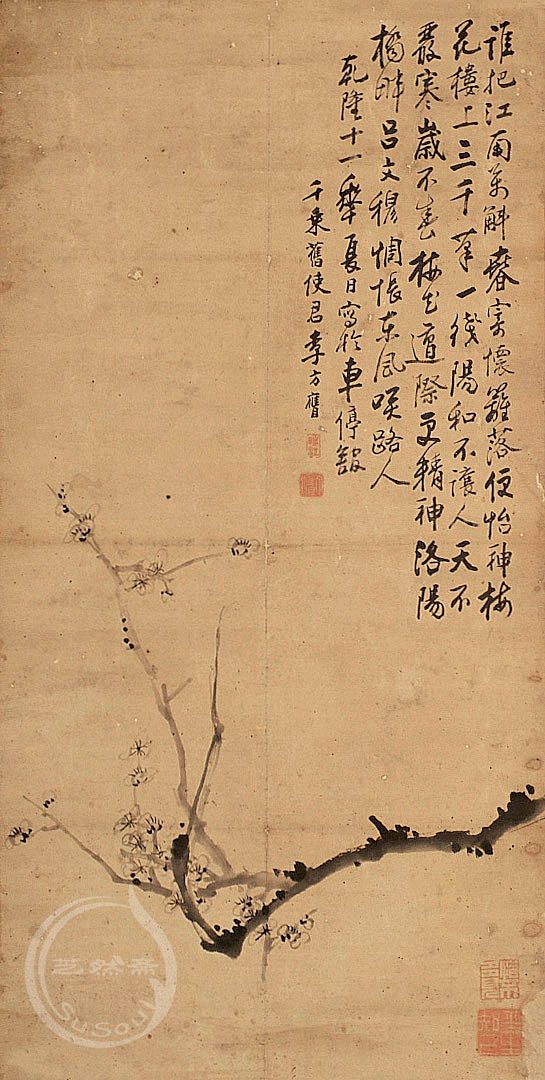 誰把江南萬斛春寄懷籬落便怡神梅
花樓上三千筆一綫陽和不讓人天不
嚴寒歲不春梅花遭際更精神洛陽
橋畔呂文穆惆悵東風咲路人
乾隆十一年夏日寫於車停館
千乘舊使君李方膺
芝然斋
SuSoul